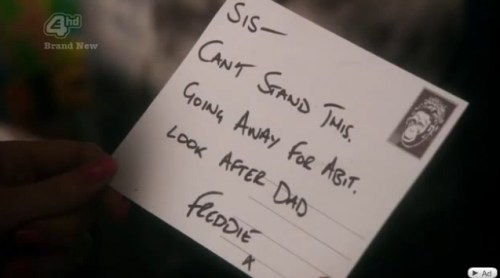 4hd
Brand New
SIS—
CAN'T STAND THIS.
GOING AWAY FOR ABIT.
LOOK AFTER DAD
FREDDIE
x
Ad